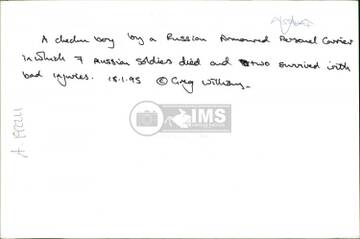 A chechen boy by a Russian Armoured Personel Carrier
in which 7 Russian soldies died and two survived with
bad injures. 18.1.95 © Greg Williams
IMS